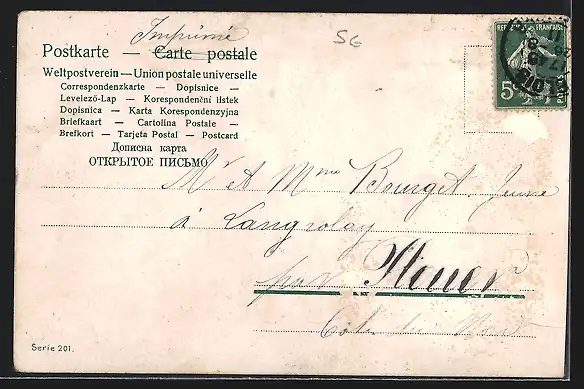 Imprimé
5c
Postkarte — Carte postale
Weltpostverein — Union postale universelle
Correspondenzkarte — Dopisnice —
Levelező-Lap — Korespondenční listek
Dopisnica — Karta Korespondenzyjna
Briefkaart — Cartolina Postale —
Brefkort — Tarjeta Postal — Postcard
Дописна карта
ОТКРЫТОЕ ПИСЬМО
REPUBLIQUE FRANCAISE
5c
POSTES
Mr et Mme Bourget Jeune
à Langrolay
par
Côtes du Nord
Serie 201.